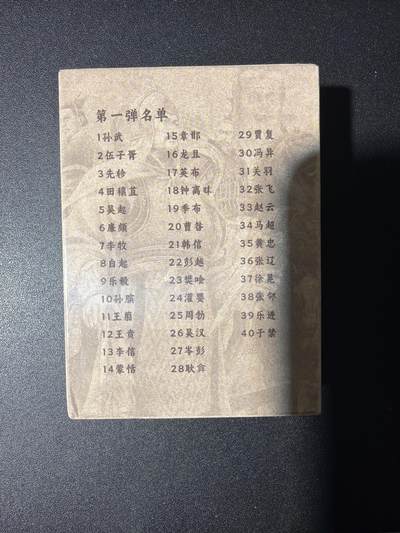 第一弹名单
1孙武
2伍子胥
3先轸
4田穰苴
5吴起
6廉颇
7李牧
8白起
9乐毅
10孙膑
11王翦
12王贲
13李信
14蒙恬
15章邯
16龙且
17英布
18钟离昧
19季布
20曹咎
21韩信
22彭越
23樊哙
24灌婴
25周勃
26吴汉
27岑彭
28耿弇
29贾复
30冯异
31关羽
32张飞
33赵云
34马超
35黄忠
36张辽
37徐晃
38张郃
39乐进
40于禁